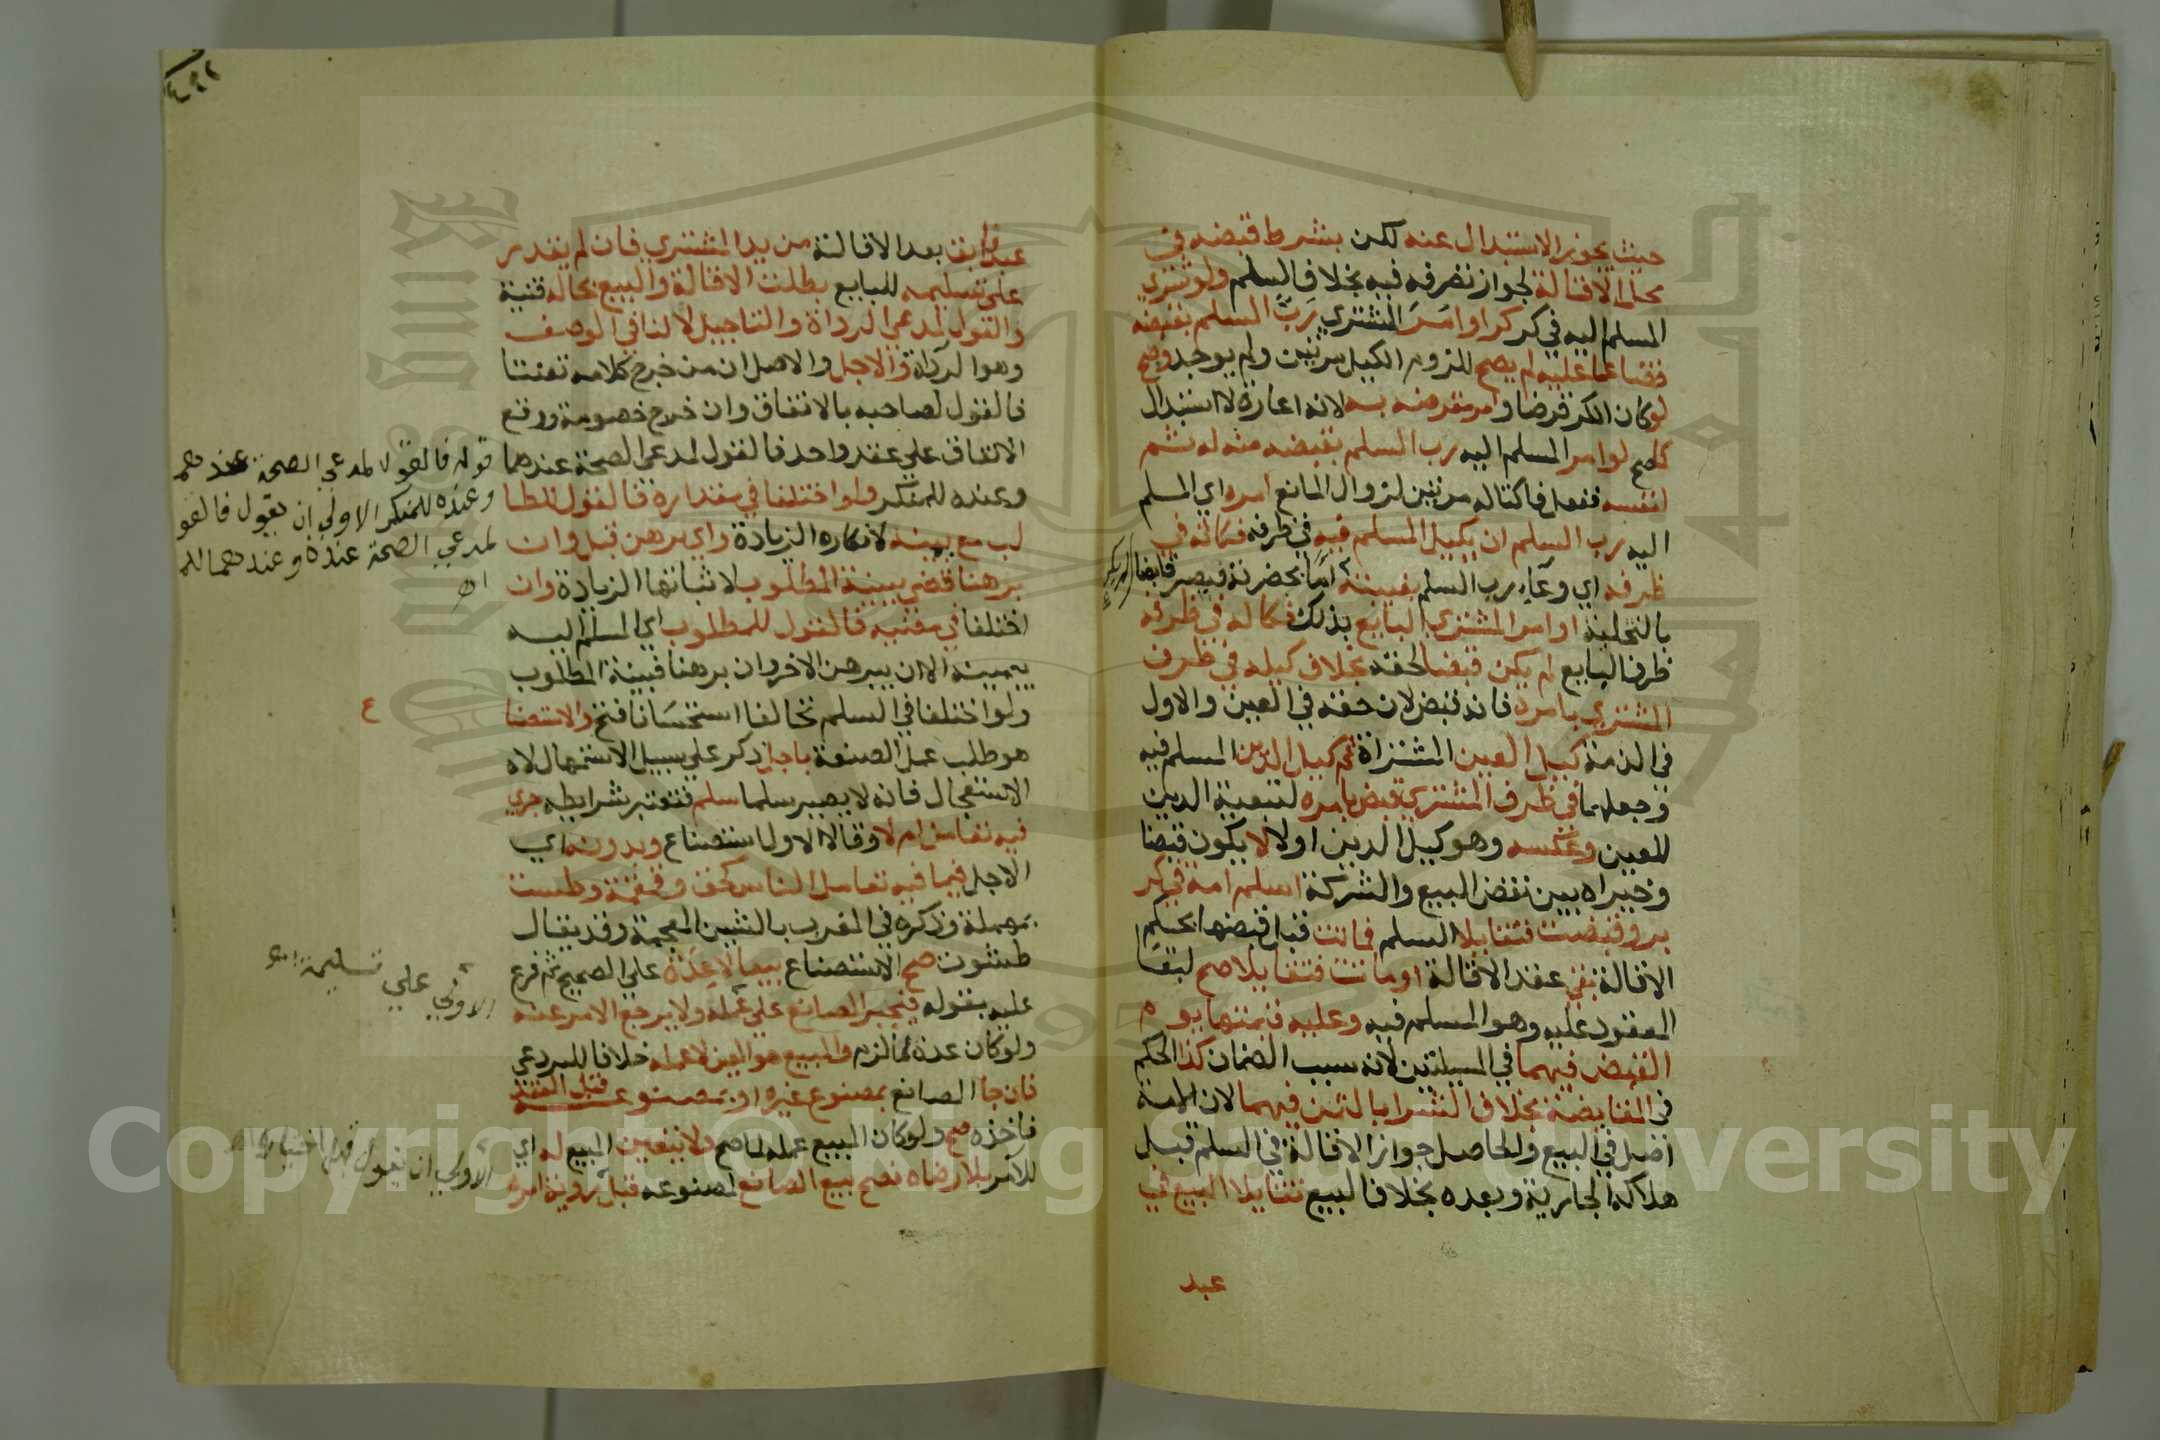 حيث يجوز الاستبدال عنه لكن بشرط قبضه في
محل الاقالة لجواز تصرفه فيه بخلاف السلم ولو شري
المسلم اليه في كر كرا وامر المشتري رب السلم بقبضه
قضا عما عليه لم يصح للزوم الكيل مرتين ولم يوجد وصح
لو كان الكر قرضا وامر مقرضه به لانه اعارة لا استبدال
كما صح لو امر المسلم اليه رب السلم بقبضه منه له ثم
لنفسه ففعل فاكتاله مرتين لزوال المانع امره اي المسلم
اليه رب السلم ان يكيل المسلم فيه في ظرفه فكاله في
ظرفه اي وعاء رب السلم بغيبته اما بحضرته فيصير قابضا
بالتخلية او امر المشتري البايع بذلك فكاله في ظرفه
ظرف البايع لم يكن قبضا لحقه بخلاف كيله في ظرف
المشتري بامره فانه قبض لان حقه في العين والاول
في الذمة كيل العين المشتراة ثم كيل الدين المسلم فيه
وجعلهما في ظرف المشتري قبض بامره لتبعية الدين
للعين وعكسه وهو كيل الدين اولا لا يكون قبضا
وخيراه بين نقض البيع والشركة اسلم امة في كر
بر وقبضت فتقايلا السلم فماتت قبل قبضها بحكم
الاقالة بقي عقد الاقالة او ماتت فتقايلا صح لبقا
المعقود عليه وهو المسلم فيه وعليه قيمتها يوم
القبض فيهما في المسيلتين لانه سبب الضمان كذا الحكم
في المقايضة بخلاف الشرا بالثمن فيهما لان الامة
اصل في البيع والحاصل جواز الاقالة في السلم قبل
هلاك الجارية وبعده بخلاف البيع تقايلا البيع في
عبد
عبد فابق بعد الاقالة من يد المشتري فان لم يقدر
علي تسليمه للبايع بطلت الاقالة والبيع بحاله قنية
والقول لمدعي الرداة والتاجيل لا لنافي الوصف
وهو الرداة والاجل والاصل ان من خرج كلامه تعنتا
فالقول لصاحبه بالاتفاق وان خرج خصومة ووقع
الاتفاق علي عقد واحد فالقول لمدعي الصحة عندهما
وعنده للمنكر ولو اختلفا في مقداره فالقول للطا
لب مع يمينه لانكاره الزيادة واي برهن قبل وان
برهنا قضي ببينة المطلوب لاثباتها الزيادة وان
اختلفا في مضيه فالقول للمطلوب اي المسلم اليه
بيمينه الا ان يبرهن الاخر وان برهنا فبينة المطلوب
ولو اختلفا في السلم تحالفا استحسانا فتح والاستصنا
ع
هو طلب عمل الصنعة باجل ذكر علي سبيل الاستمهال لا
الاستعجال فانه لا يصير سلما سلم فتعتبر شرايطه جري
فيه تعامل ام لا وقالا الاول استصناع وبدونه اي
الاجل فيما فيه تعامل الناس كخف وقمقمة وطست
بمهملة وذكره في المغرب بالشين المعجمة وقد يقال
طشوت صح الاستصناع بيعا لا عدة علي الصحيح ثم فرع
عليه بقوله فيجبر الصانع علي عمله ولا يرجع الامر عنه
ولو كان عدة لما لزم والمبيع هو العين لا عمله خلافا للبردعي
فان جا الصانع بمصنوع غيره او بمصنوعه قبل العقد
فاخذه صح ولو كان المبيع عمله لما صح ولا يتعين المبيع له اي
للامر بلا رضاه فصح بيع الصانع لمصنوعه قبل رؤية امره
قوله فالقول لمدعي الصحة عندهما
وعنده للمنكر الاولي ان يقول فالقو
لمدعي الصحة عنده وعندهما للم
اه
الاولي علي تسليمه اه
الاولي ان يقول
Copyright © King Saud University